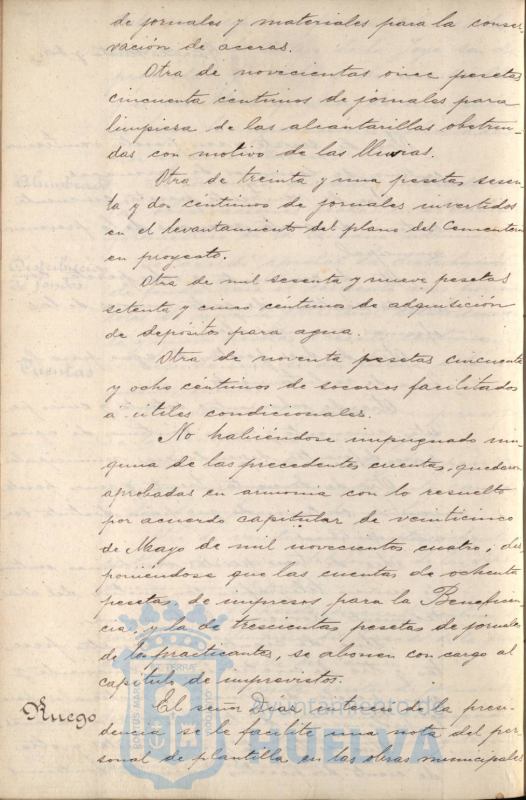 de jornales y materiales para la conser-
vación de aceras.
Otra de novecientas once pesetas
cincuenta céntimos de jornales para
limpiesa de las alcantarillas obstrui-
das con motivo de las lluvias.
Otra de treinta y una pesetas sesen-
ta y dos céntimos de jornales invertidos
en el levantamiento del plano del Cementerio
en proyecto.
Otra de mil sesenta y nueve pesetas
setenta y cinco céntimos de adquisición
de depósitos para agua.
Otra de noventa pesetas cincuenta
y ocho céntimos de socorros facilitados
a útiles condicionales.
No habiéndose impugnado nin-
guna de las precedentes cuentas, quedaron
aprobadas en armonia con lo resuelto
por acuerdo capitular de veinticinco
de Mayo de mil novecientos cuatro, dis-
poniéndose que las cuentas de ochenta
pesetas de impresos para la Beneficen-
cia, y la de trescientas pesetas de jornales
de los practicantes, se abonen con cargo al
capítulo de imprevistos.
Ruego
El señor Dias interesa de la presi-
dencia se le facilite una nota del per-
sonal de plantilla en las obras municipales
Ayuntamiento de
HUELVA
PORTUS MARIS ET TERRAE CUSTODIA